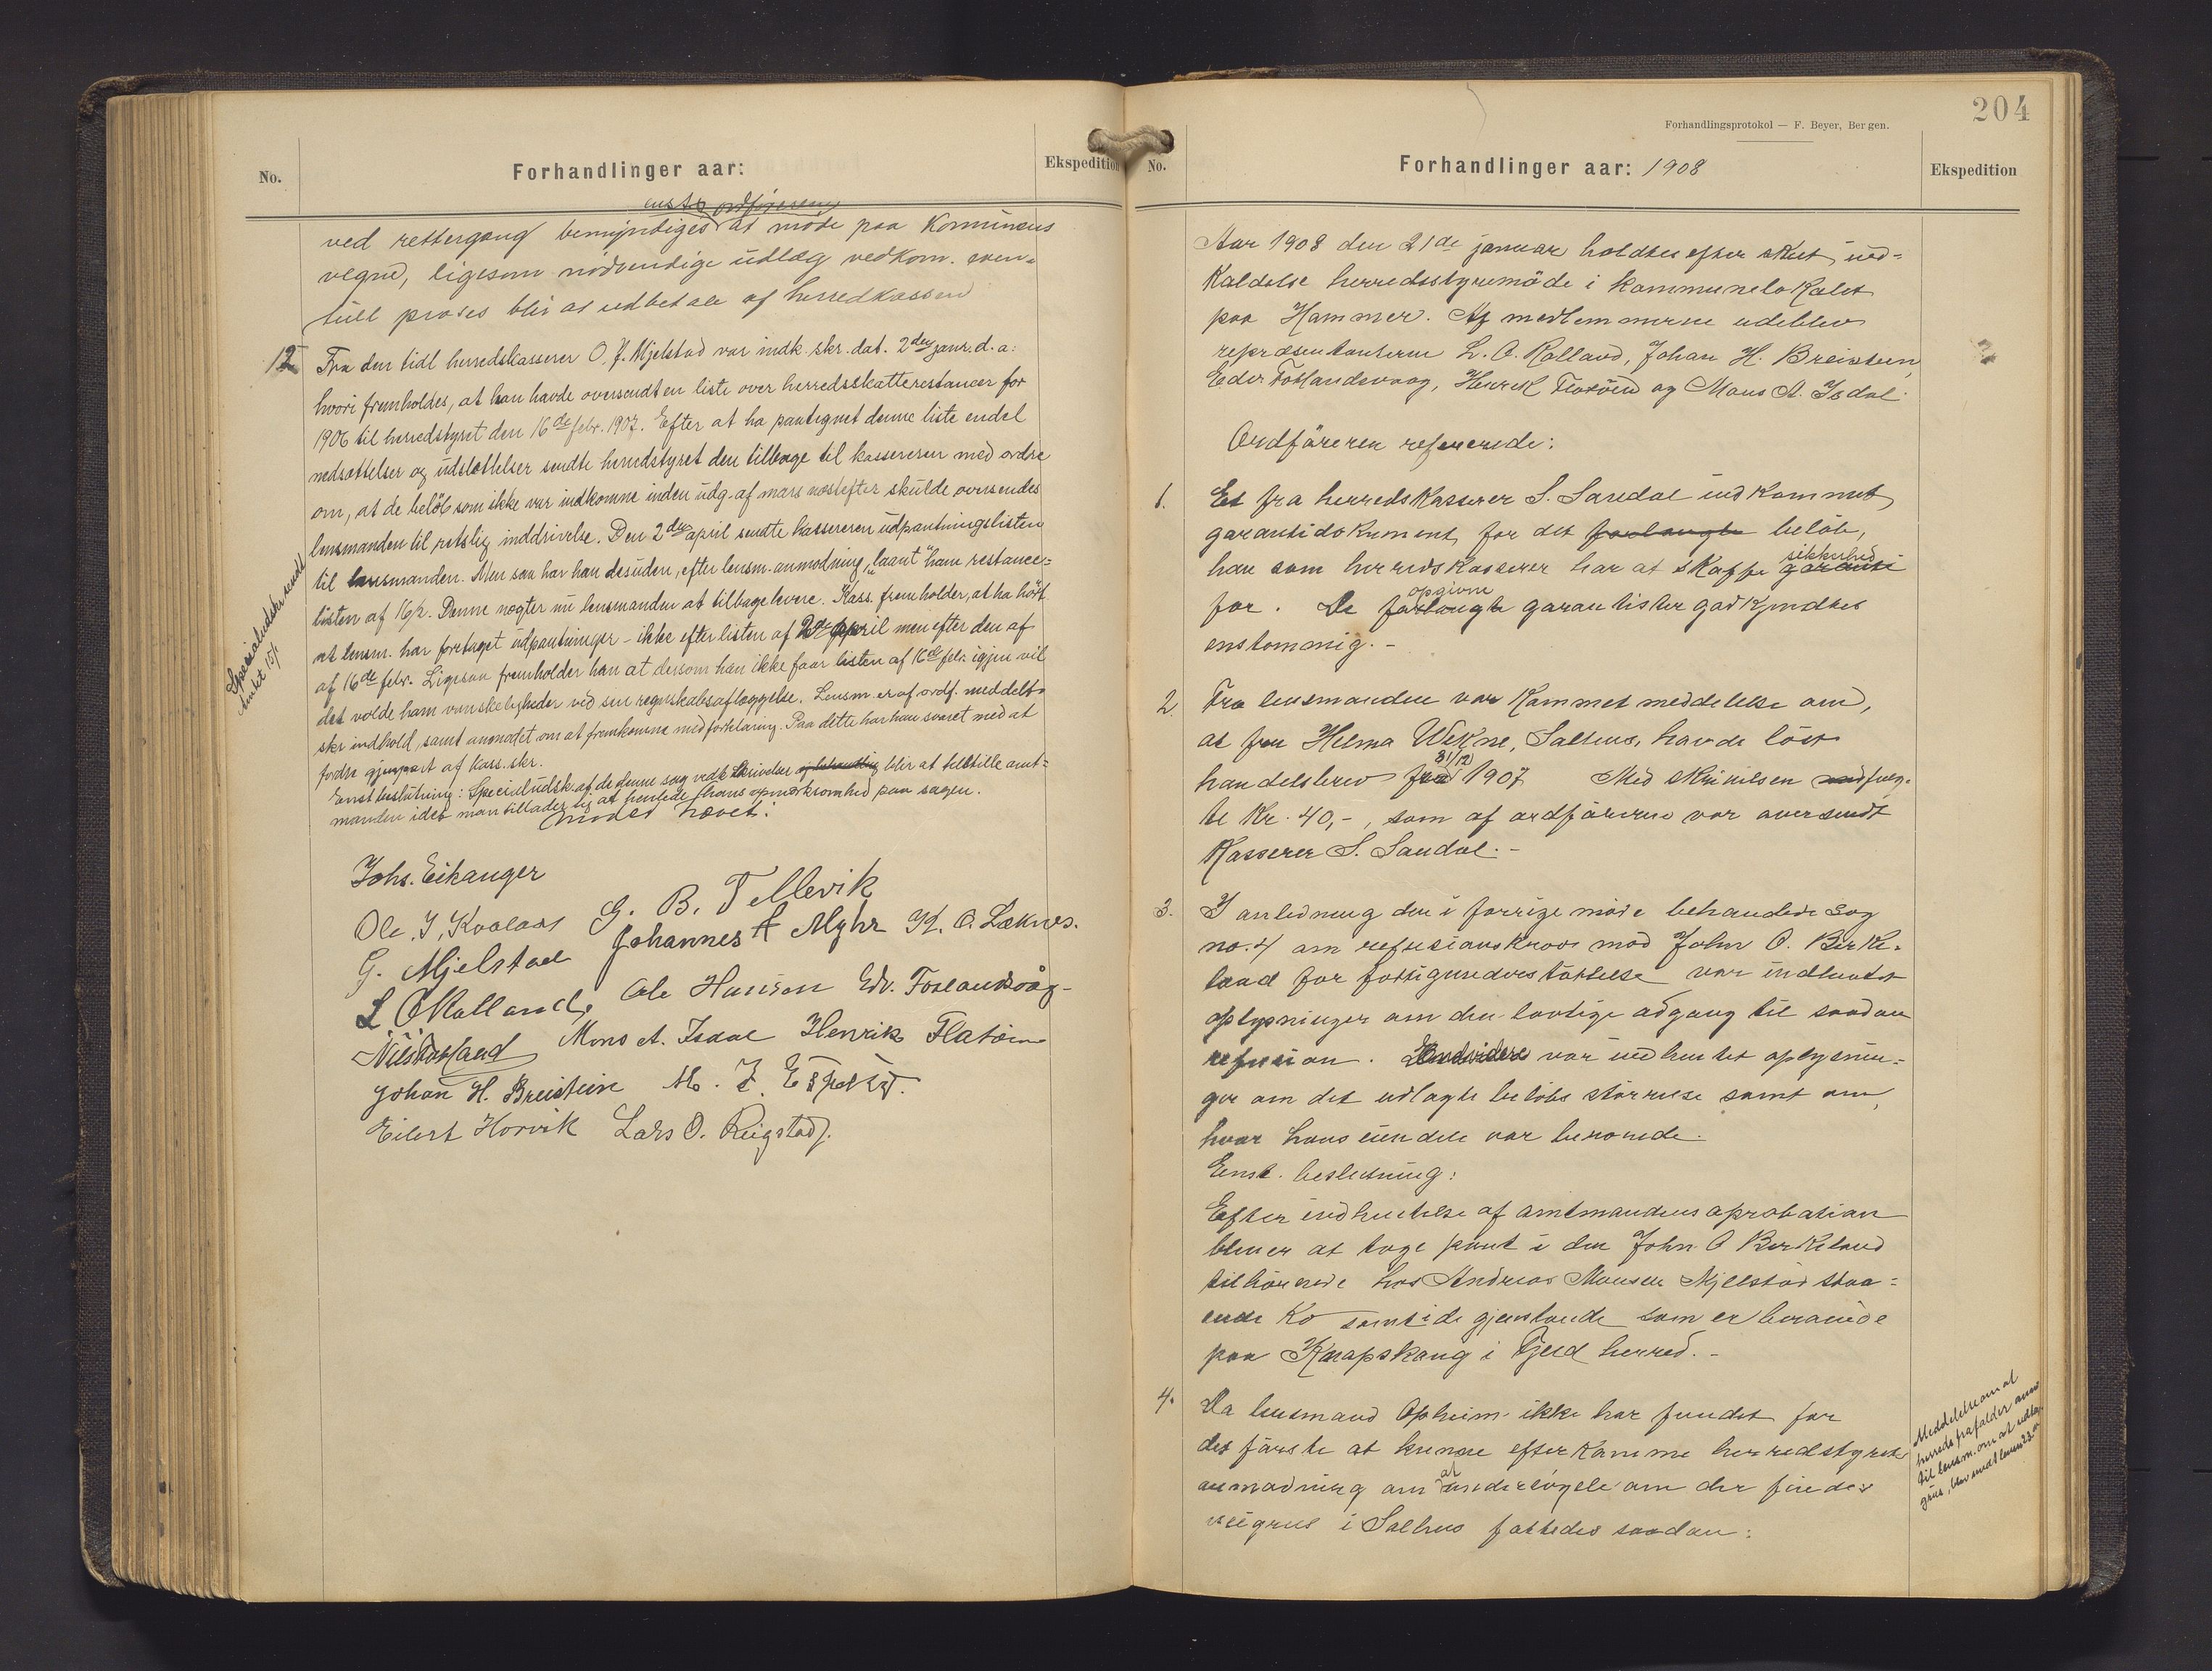 No.
Forhandlinger aar:
Ekspedition
ved rettergang bemyndiges at möde paa Kommunens
vegne, ligesom nödvendige udlæg vedkom. even-
tuell proses blir at udbetale af herredkassen
12 Fra den tidl herredskasserer O. J. Mjelstad var indk. skr. dat. 2den janr. d. a.
hvori fremholdes, at han havde oversendt en liste over herredsskatterestancer for
1906 til herredstyret den 16de febr. 1907. Efter at ha paategnet denne liste endel
nedsættelser og udslættelser sendte herredstyret den tilbage til kassereren med ordre
om, at de belöb som ikke var indkomne inden udg. af mars næstefter skulde oversendes
lensmanden til retslig inddrivelse. Den 2den april sendte kassereren udpantningslisten
til lensmanden. Men saa har han desuden, efter lensm. anmodning, „laant" ham restance-
listen af 16/2. Denne nægter nu lensmanden at tilbagelevere. Kass. fremholder, at ha hört
at lensm. har foretaget udpantninger - ikke efter listen af 2de april men efter den af
af 16de febr. Ligesaa fremholder han at dersom han ikke faar listen af 16de febr. igjen vil
det volde ham vanskeligheder ved sin regnskabsaflæggelse. Lensm. er af ordf. meddelt
skr indhold, samt anmodet om at fremkomme med forklaring. Paa dette har han svaret med at
fordre gjenpart af kass. skr.
Enst beslutning: Specialudsk. af de denne sag vedk skrivelser og behandling blir at tilstille amt-
manden idet man tillader sig at henlede hans opmærksomhed paa sagen.
Mödet hævet.
Specialudskr sendt
Amtet 15/1
Johs. Eikanger
Ole. J. Kvalaas G. B. Tellevik
G. Mjelstad Johannes A Myhr K. O. Leknes.
L. O Kalland, Ole Hansen Edv. Foslandsvåg
Mons A. Isdal Henrik Flatöen
Johan H. Breistein M. J. Espelid.
Eilert Horvik Lars O. Reigstad.
204
Forhandlingsprotokol — F. Beyer, Bergen.
No.
Forhandlinger aar: 1908
Ekspedition
Aar 1908 den 21de januar holdtes efter skeet ind-
kaldelse herredsstyremöde i kommunelokalet
paa Hammer. Af medlemmerne udeblev
repræsentanterne L. O. Kalland, Johan H. Breistein,
Edv Foslandsvaag, Henrik Flatöen og Mons A. Isdal.
Ordföreren refererede:
1. Et fra herredskasserer S. Sandal indkommet
garantidokument for det forlangte belöb,
han som herredskasserer har at skaffe garanti sikkerhed
for. De forlangte opgivne garantister godkjendtes
enstemmig. -
2. Fra lensmanden var kommet meddelelse om,
at fru Helma Wikne, Salhus, havde löst
handelsbrev fra 31/12 1907 Med skrivelsen medfulg-
te Kr. 40,-, som af ordföreren var oversendt
Kasserer S. Sandal. -
3. I anledning den i forrige möde behandlede sag
no. 4 om refusionskrav mod John O. Birke-
land for fattigunderstöttelse var indhentet
oplysninger om den lovlige adgang til saadan
refusion. Endvidere var indhentet oplysnin-
ger om det udlagte belöbs störrelse samt om,
hvor hans eiendele var beroende.
Enst. beslutning:
Efter indhentelse af amtmandens aprobation
bliver at tage pant i den John O Birkeland
tilhörende hos Andreas Monsen Mjelstad staa-
ende Ko samt de gjenstande som er beroende
paa Knapskaug i Fjeld herred. -
4. Da lensmand Opheim ikke har fundet for
det förste at kunne efterkomme herredstyrets
anmodning om at undersögele om der findes
veigrus i Salhus fattedes saadan:
Meddelelse om at
til lensm. om at